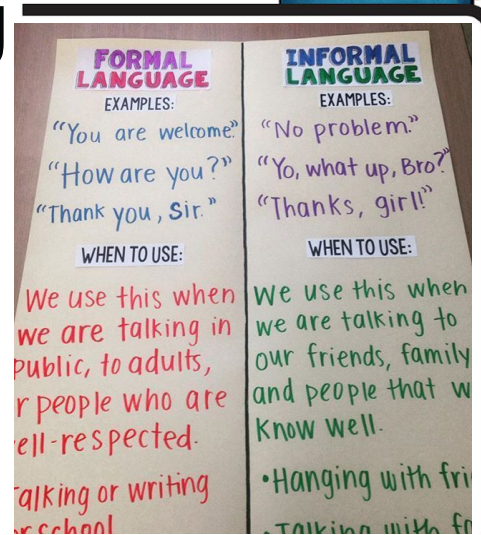 FORMAL
LANGUAGE
EXAMPLES:
"You are welcome."
"How are you?"
"Thank you, Sir."
WHEN TO USE:
We use this when
we are talking in
public, to adults,
r people who are
ell-respected.
alking or writing
r school
INFORMAL
LANGUAGE
EXAMPLES:
"No problem."
"Yo, what up, Bro?"
"Thanks, girl!"
WHEN TO USE:
We use this when
we are talking to
our friends, family
and people that w
know well.
•Hanging with fri
•Talking with fa